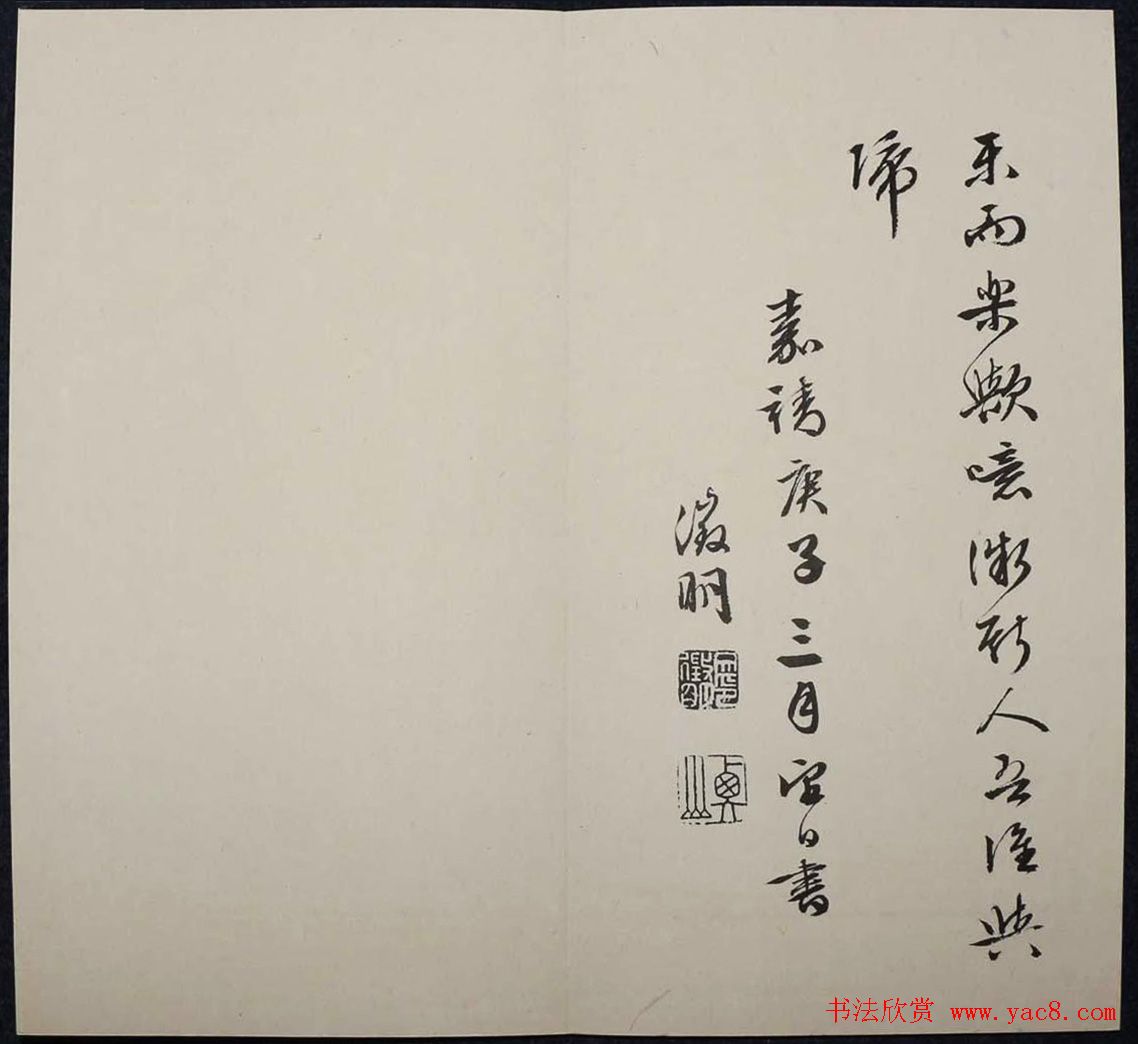 乐而楽歟噫微斯人吾誰與
歸
嘉靖庚子三月日書
徵明
书法欣赏 www.yac8.com